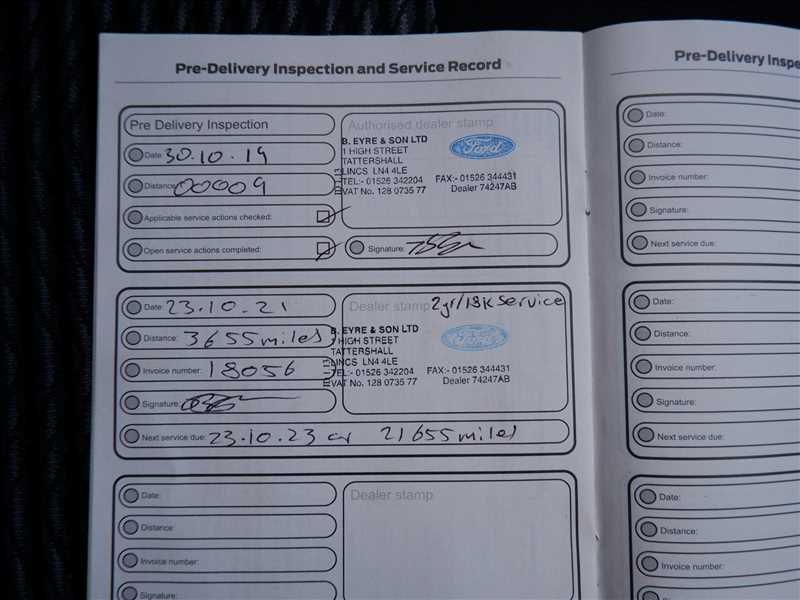 Pre-Delivery Inspection and Service Record
Pre Delivery Inspection
Date: 30.10.19
Distance: 00009
Applicable service actions checked:
Open service actions completed:
Authorised dealer stamp
B. EYRE & SON LTD
1 HIGH STREET
TATTERSHALL
LINCS LN4 4LE
TEL:- 01526 342204 FAX:- 01526 344431
VAT No. 128 0735 77 Dealer 74247AB
Ford
Signature:
Date: 23.10.21
Distance: 3655miles
Invoice number: 18056
Signature:
Dealer stamp 2yr/18k service
B. EYRE & SON LTD
1 HIGH STREET
TATTERSHALL
LINCS LN4 4LE
TEL:- 01526 342204 FAX:- 01526 344431
VAT No. 128 0735 77 Dealer 74247AB
Ford
Next service due: 23.10.23 or 21655miles
Date:
Distance:
Invoice number:
Signature:
Dealer stamp
Pre-Delivery Inspe
Date:
Distance:
Invoice number:
Signature:
Next service due:
Date:
Distance:
Invoice number:
Signature:
Next service due:
Date:
Distance:
Invoice number: